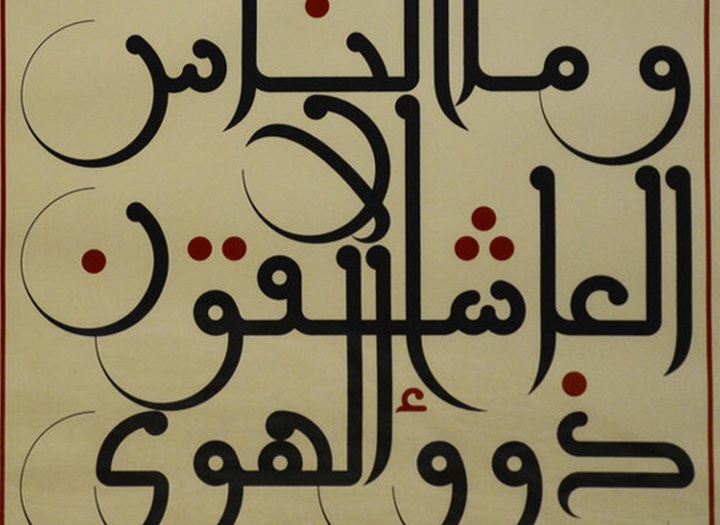 وما الناس
إلا
العاشقون
ذوو الهوى